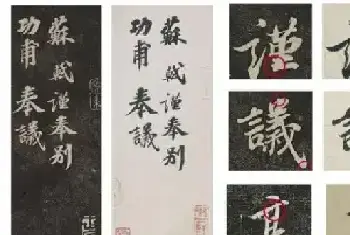 蘇軾謹奉别
功甫奉議
蘇軾謹奉别
功甫奉議
謹
議